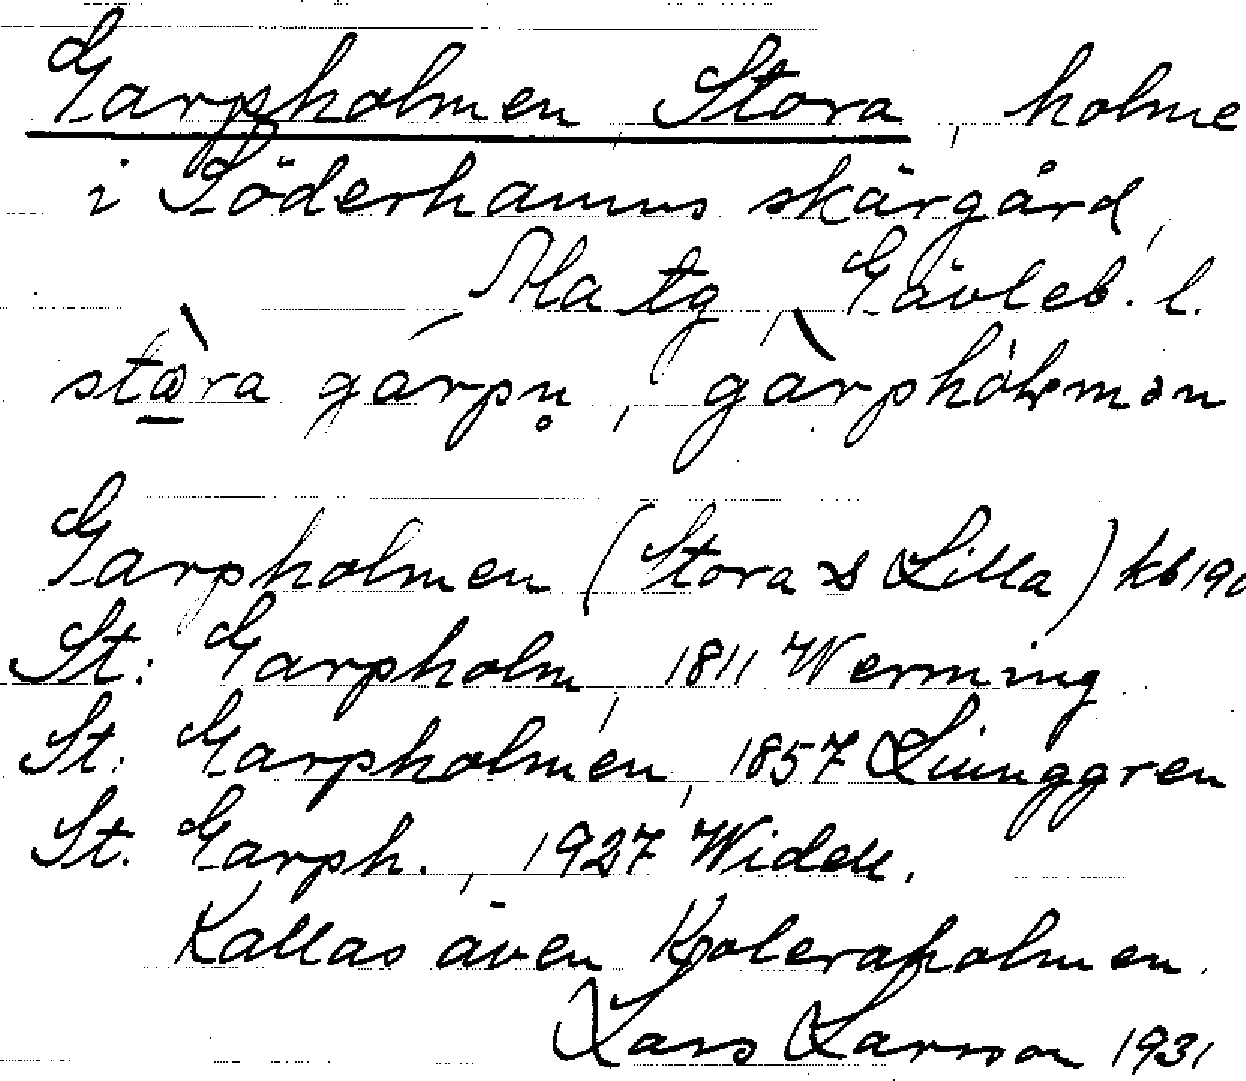 Garpholmen Stora, holme
i Söderhamns skärgård,
Ala tg, Gävleb. l.
stòra gárpn̥, gàrphòlmən
Garpholmen (Stora & Lilla) kb 190
St: Garpholm, 1811 Werming
St: Garpholmen, 1857 Ljunggren
St. Garph., 1927 Widell.
Kallas även Koleraholmen.
Lars Larsson 1931